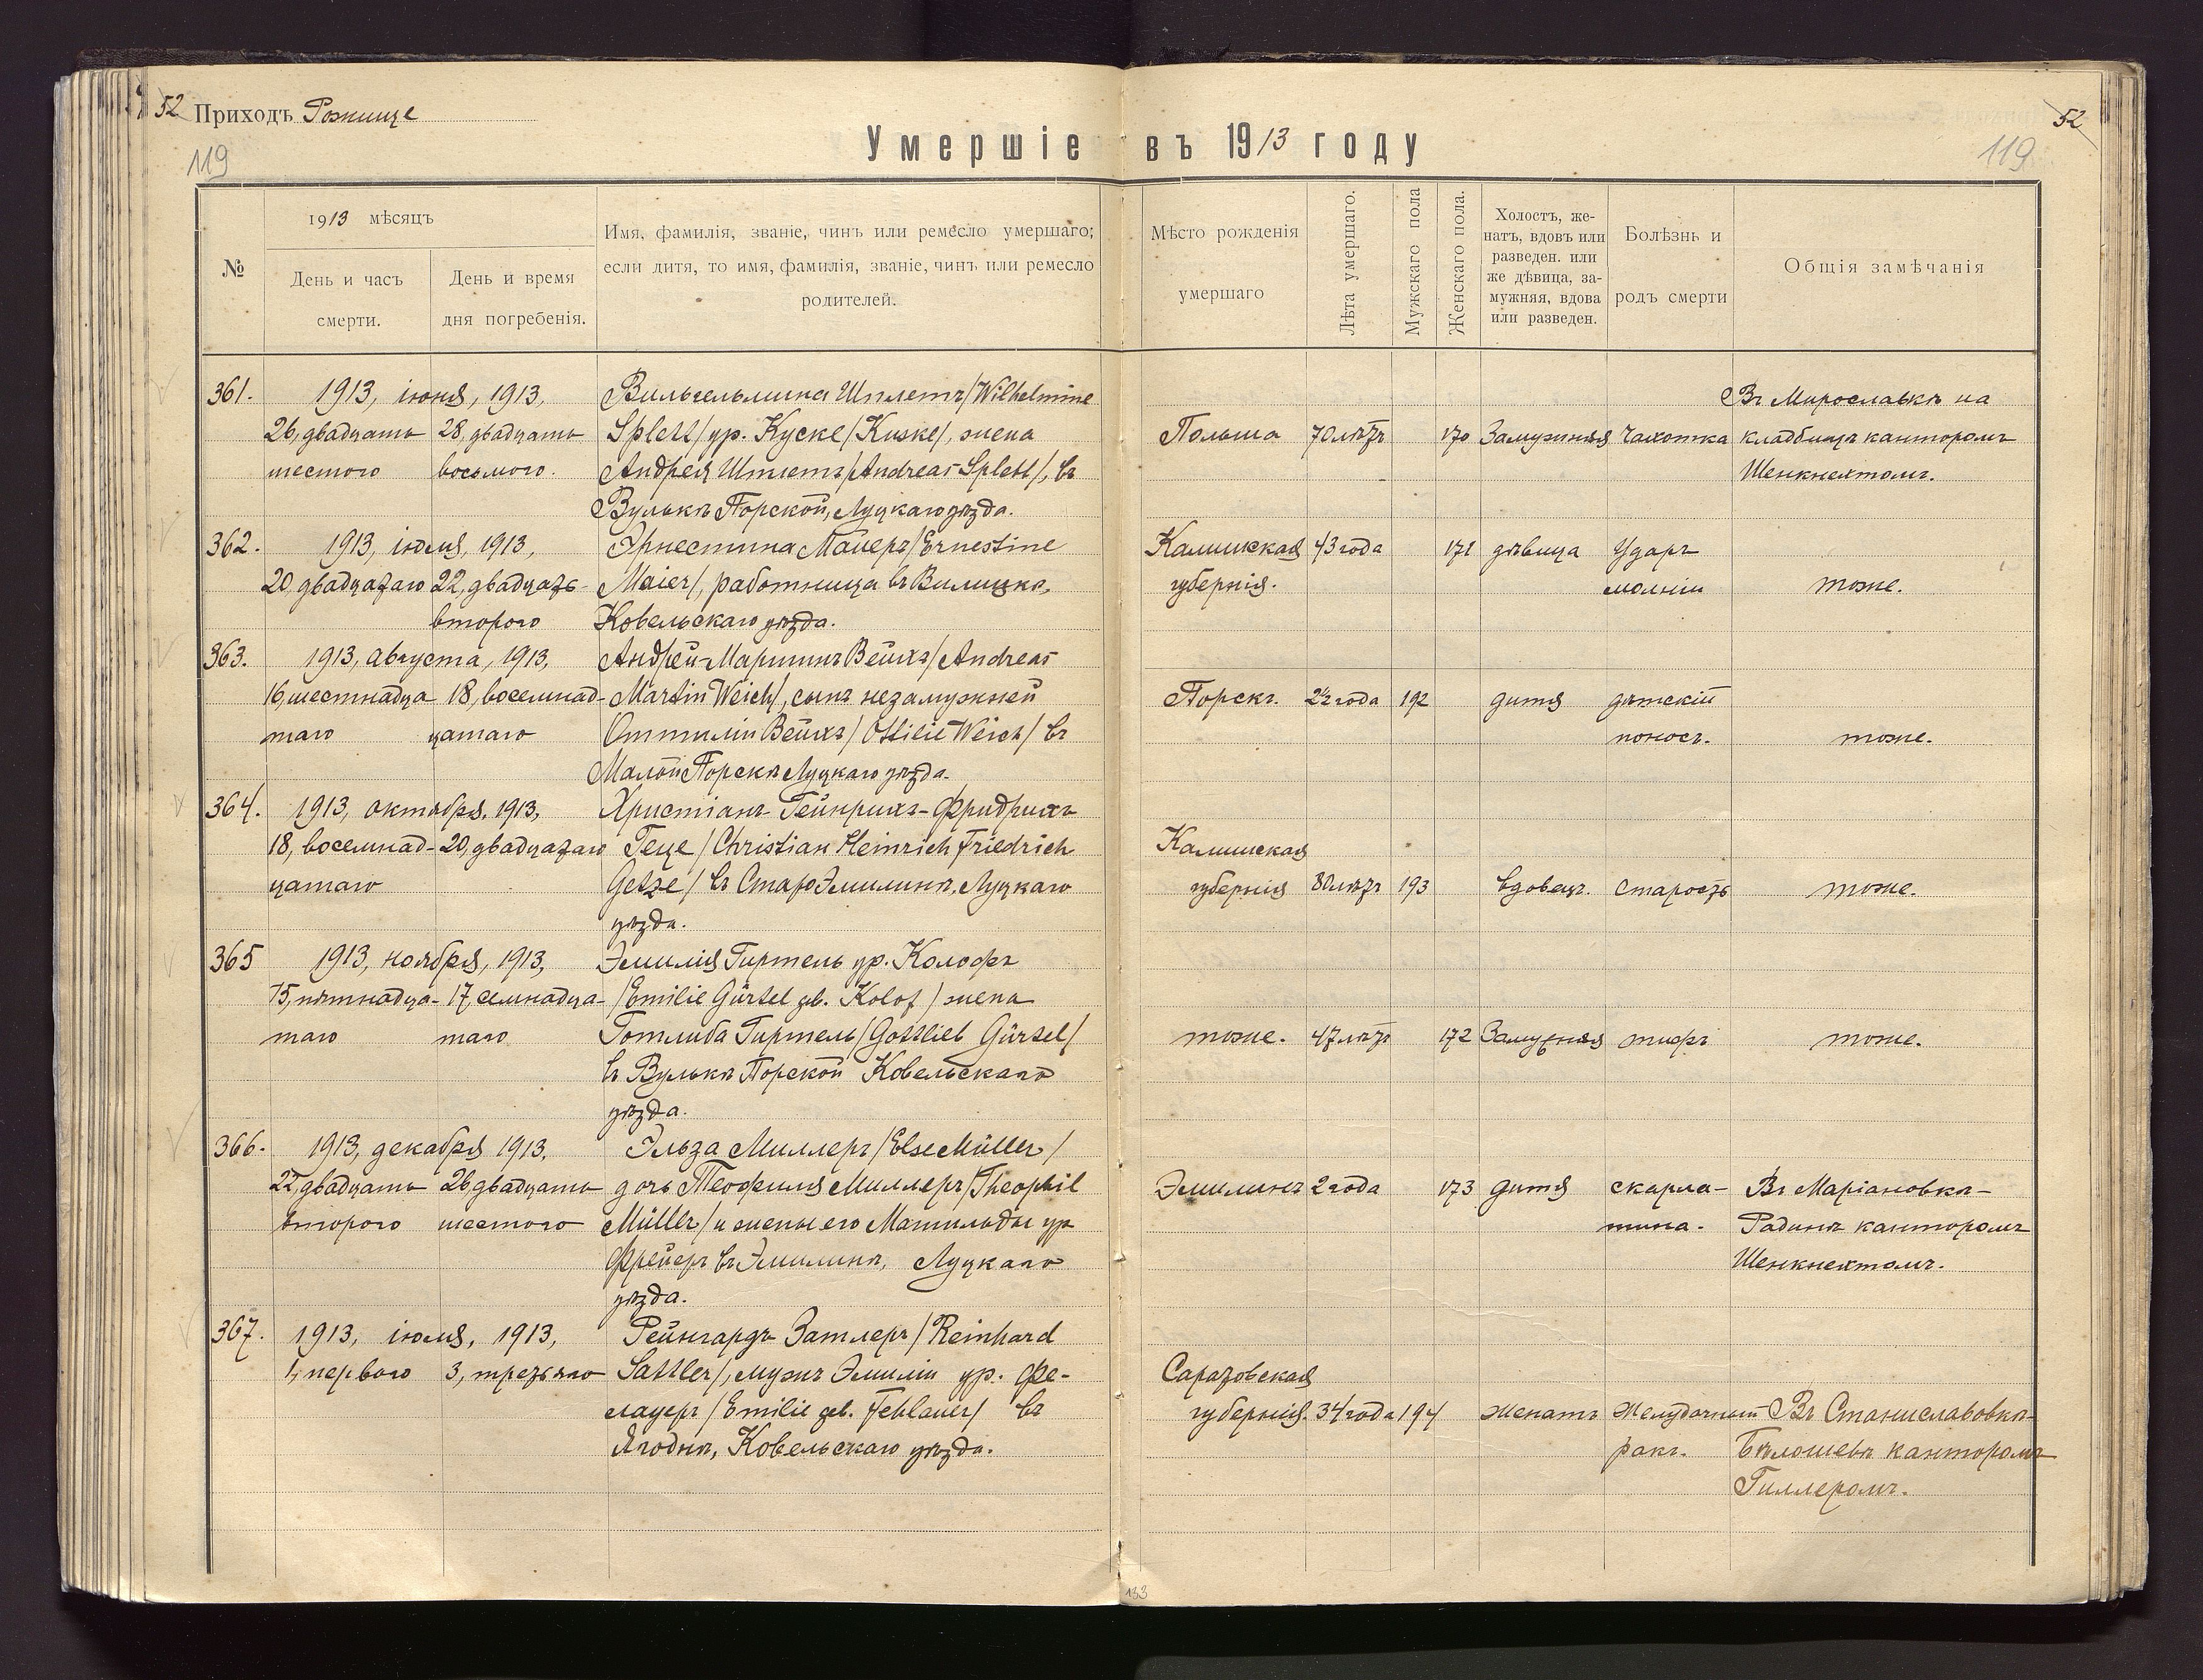 52 Приходъ Рожище
52
119
119
Умершіе въ 1913 году
№
1913 мѣсяцъ
День и часъ
смерти.
День и время
дня погребенія.
Имя, фамилія, званіе, чинъ или ремесло умершаго;
если дитя, то имя, фамилія, званіе, чинъ или ремесло
родителей.
Мѣсто рожденія
умершаго
Лѣта умершаго.
Мужскаго пола
Женскаго пола.
Холостъ, же-
натъ, вдовъ или
разведен. или
же дѣвица, за-
мужняя, вдова
или разведен.
Болѣзнь и
родъ смерти
Общія замѣчанія
361.
1913, іюня, 1913,
26, двадцать
шестого
28, двадцать
восьмого.
Вильгельмина Шплетъ /Wilhelmine
Splett/ ур. Куске /Kuske/, жена
Андрея Шплетъ /Andreas Splett/, въ
Вулькѣ Порской, Луцкаго уѣзда.
Польша
70 лѣтъ
170
Замужняя
Чахотка
Въ Мирославкѣ на
кладбищѣ канторомъ
Шенкнехтомъ.
362.
1913, іюля, 1913,
20, двадцатаго
22, двадцать
второго
Эрнестина Маіеръ /Ernestine
Maier/, работница въ Вилицкѣ,
Ковельскаго уѣзда.
Калишская
губернія.
43 года
171
дѣвица
Ударъ
молніи
тоже.
363.
1913, августа, 1913,
16, шестнадца
таго
18, восемнад-
цатаго
Андрей-Мартинъ Вейхъ /Andreas
Martin Weich/, сынъ незамужней
Оттиліи Вейхъ /Ottilie Weich/ въ
Малой Порскѣ Луцкаго уѣзда.
Порскъ.
2½ года
192
дитя
дѣтскій
поносъ.
тоже.
364.
1913, октября, 1913,
18, восемнад-
цатаго
20, двадцатаго
Христіанъ-Гейнрихъ-Фридрихъ
Геце /Christian Heinrich Friedrich
Getze/ въ Старо Эмилинѣ, Луцкаго
уѣзда.
Калишская
губернія
80 лѣтъ
193
вдовецъ.
старость
тоже.
365
1913, ноября, 1913,
15, пятнадца-
таго
17, семнадца-
таго
Эмилія Гиртель ур. Колофъ
/Emilie Gürtel geb. Kolof/ жена
Готлиба Гиртель /Gottlieb Gürtel/
въ Вулькѣ Порской Ковельскаго
уѣзда.
тоже.
47 лѣтъ
172
Замужняя
тифъ
тоже.
366.
1913, декабря 1913,
22, двадцать
второго
26, двадцать
шестого
Эльза Миллеръ /Else Müller/
дочь Теофиля Миллеръ /Theophil
Müller/ и жены его Матильды ур.
Фрейеръ въ Эмилинѣ, Луцкаго
уѣзда.
Эмилинъ
2 года
173
дитя
скарла-
тина.
Въ Маріановкѣ-
Радинѣ канторомъ
Шенкнехтомъ.
367.
1913, іюля, 1913,
1, перваго
3, третьяго
Рейнгардъ Затлеръ /Reinhard
Sattler/, мужъ Эмиліи ур. Фе-
лауеръ /Emilie geb. Fehlauer/ въ
Ягоднѣ, Ковельскаго уѣзда.
Саратовская
губернія.
34 года
194
женатъ
Желудочный
ракъ.
Въ Станиславовкѣ-
Бѣлошевѣ канторомъ
Гиллеромъ.
133